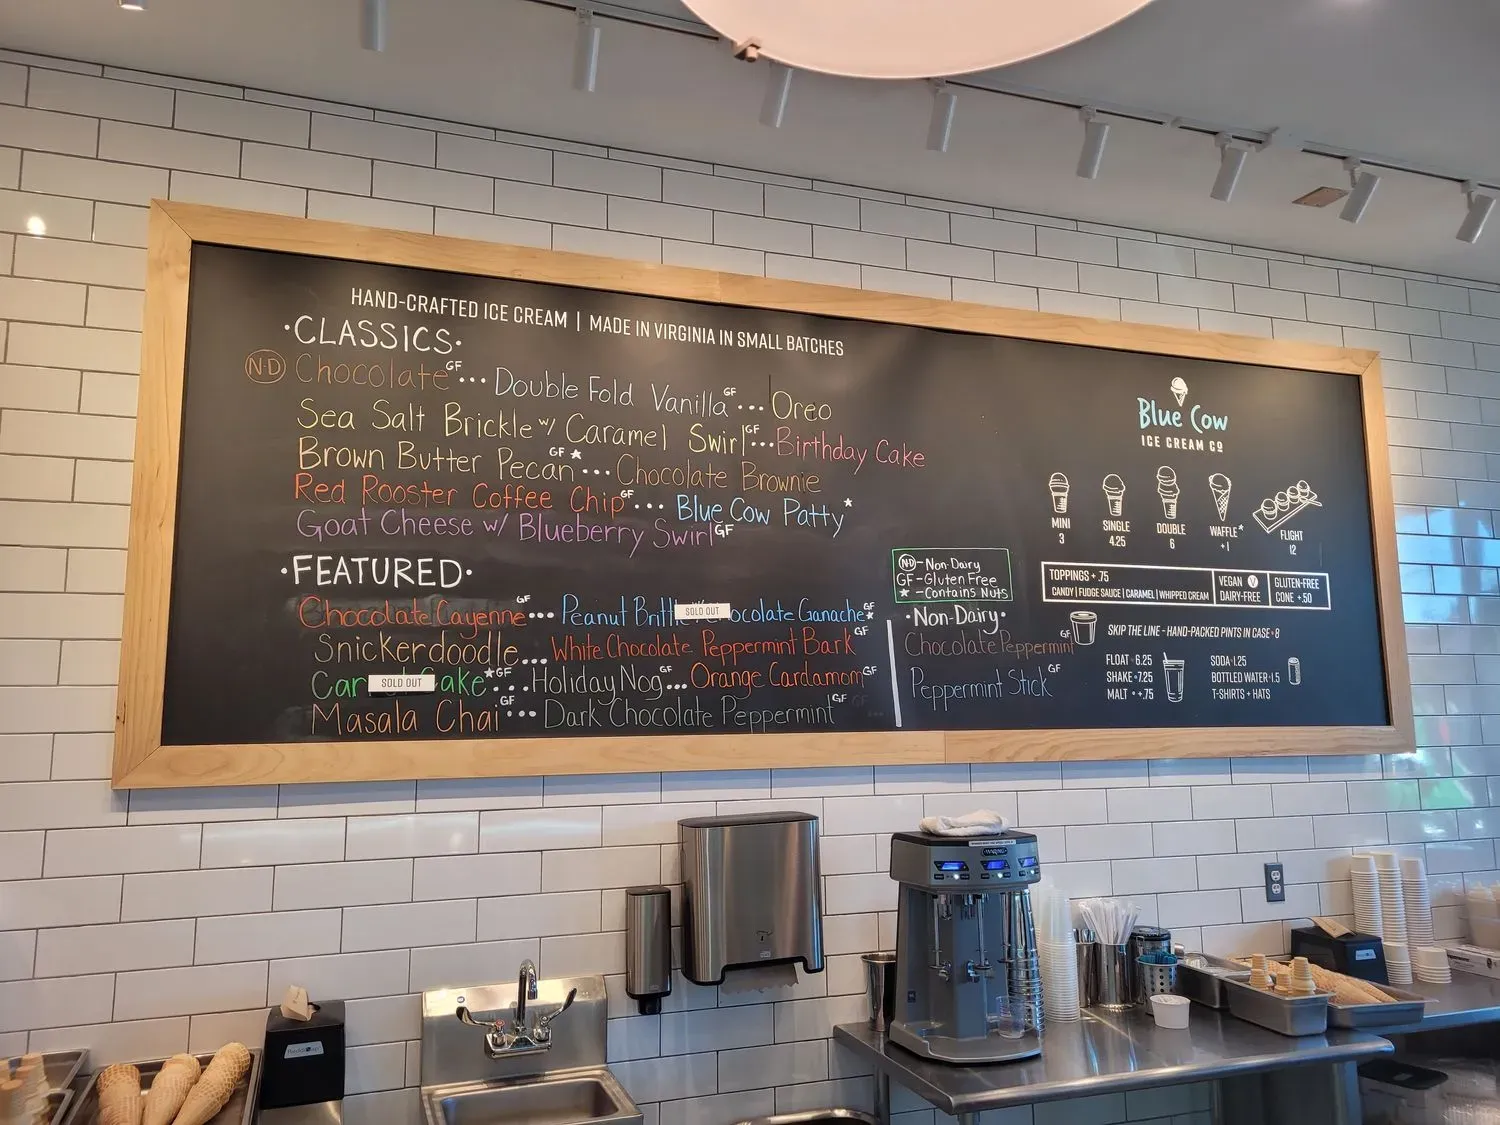 HAND-CRAFTED ICE CREAM | MADE IN VIRGINIA IN SMALL BATCHES
·CLASSICS·
ND Chocolate GF... Double Fold Vanilla GF... Oreo
Sea Salt Brickle w/ Caramel Swirl GF... Birthday Cake
Brown Butter Pecan GF ★... Chocolate Brownie
Red Rooster Coffee Chip GF... Blue Cow Patty ★
Goat Cheese w/ Blueberry Swirl GF
·FEATURED·
Chocolate Cayenne GF... Peanut Britt SOLD OUT ocolate Ganache GF ★
Snickerdoodle... White Chocolate Peppermint Bark GF
Car SOLD OUT ake ★ GF... Holiday Nog GF... Orange Cardamom GF
Masala Chai GF... Dark Chocolate Peppermint GF GF
ND - Non-Dairy
GF - Gluten Free
★ - Contains Nuts
·Non-Dairy·
Chocolate Peppermint GF
Peppermint Stick GF
Blue Cow
ICE CREAM CO
MINI 3
SINGLE 4.25
DOUBLE 6
WAFFLE* +1
FLIGHT 12
TOPPINGS + .75
CANDY | FUDGE SAUCE | CARAMEL | WHIPPED CREAM
VEGAN V
DAIRY-FREE
GLUTEN-FREE
CONE +.50
SKIP THE LINE - HAND-PACKED PINTS IN CASE · 8
FLOAT · 6.25
SHAKE · 7.25
MALT · +.75
SODA · 1.25
BOTTLED WATER · 1.5
T-SHIRTS + HATS
WARING